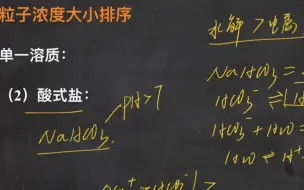 粒子浓度大小排序
单一溶质：
（2）酸式盐：
NaHCO₃
PH>7
水解 > 电离
NaHCO₃ =
HCO₃⁻ ⇌
HCO₃⁻ + H₂O =
H₂O ⇌ H⁺